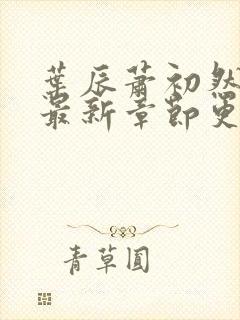 葉辰蕭初然
最新章節更
青草圓